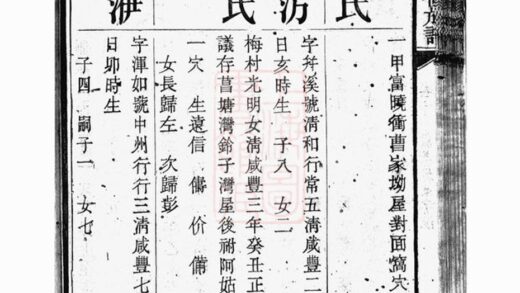 民
民
一甲富曉衝曹家坳屋對面窩穴
字弁溪號清和行常五清咸豐二
日亥時生 子八 女二
梅村光明女清咸豐三年癸丑正
議存菖塘灣鈴子灣屋後祔阿姑
一穴 生遠信 儔 价 備
女長歸左 次歸彭
字渾如號中州行行三清咸豐七
日卯時生
子四 嗣子一 女七